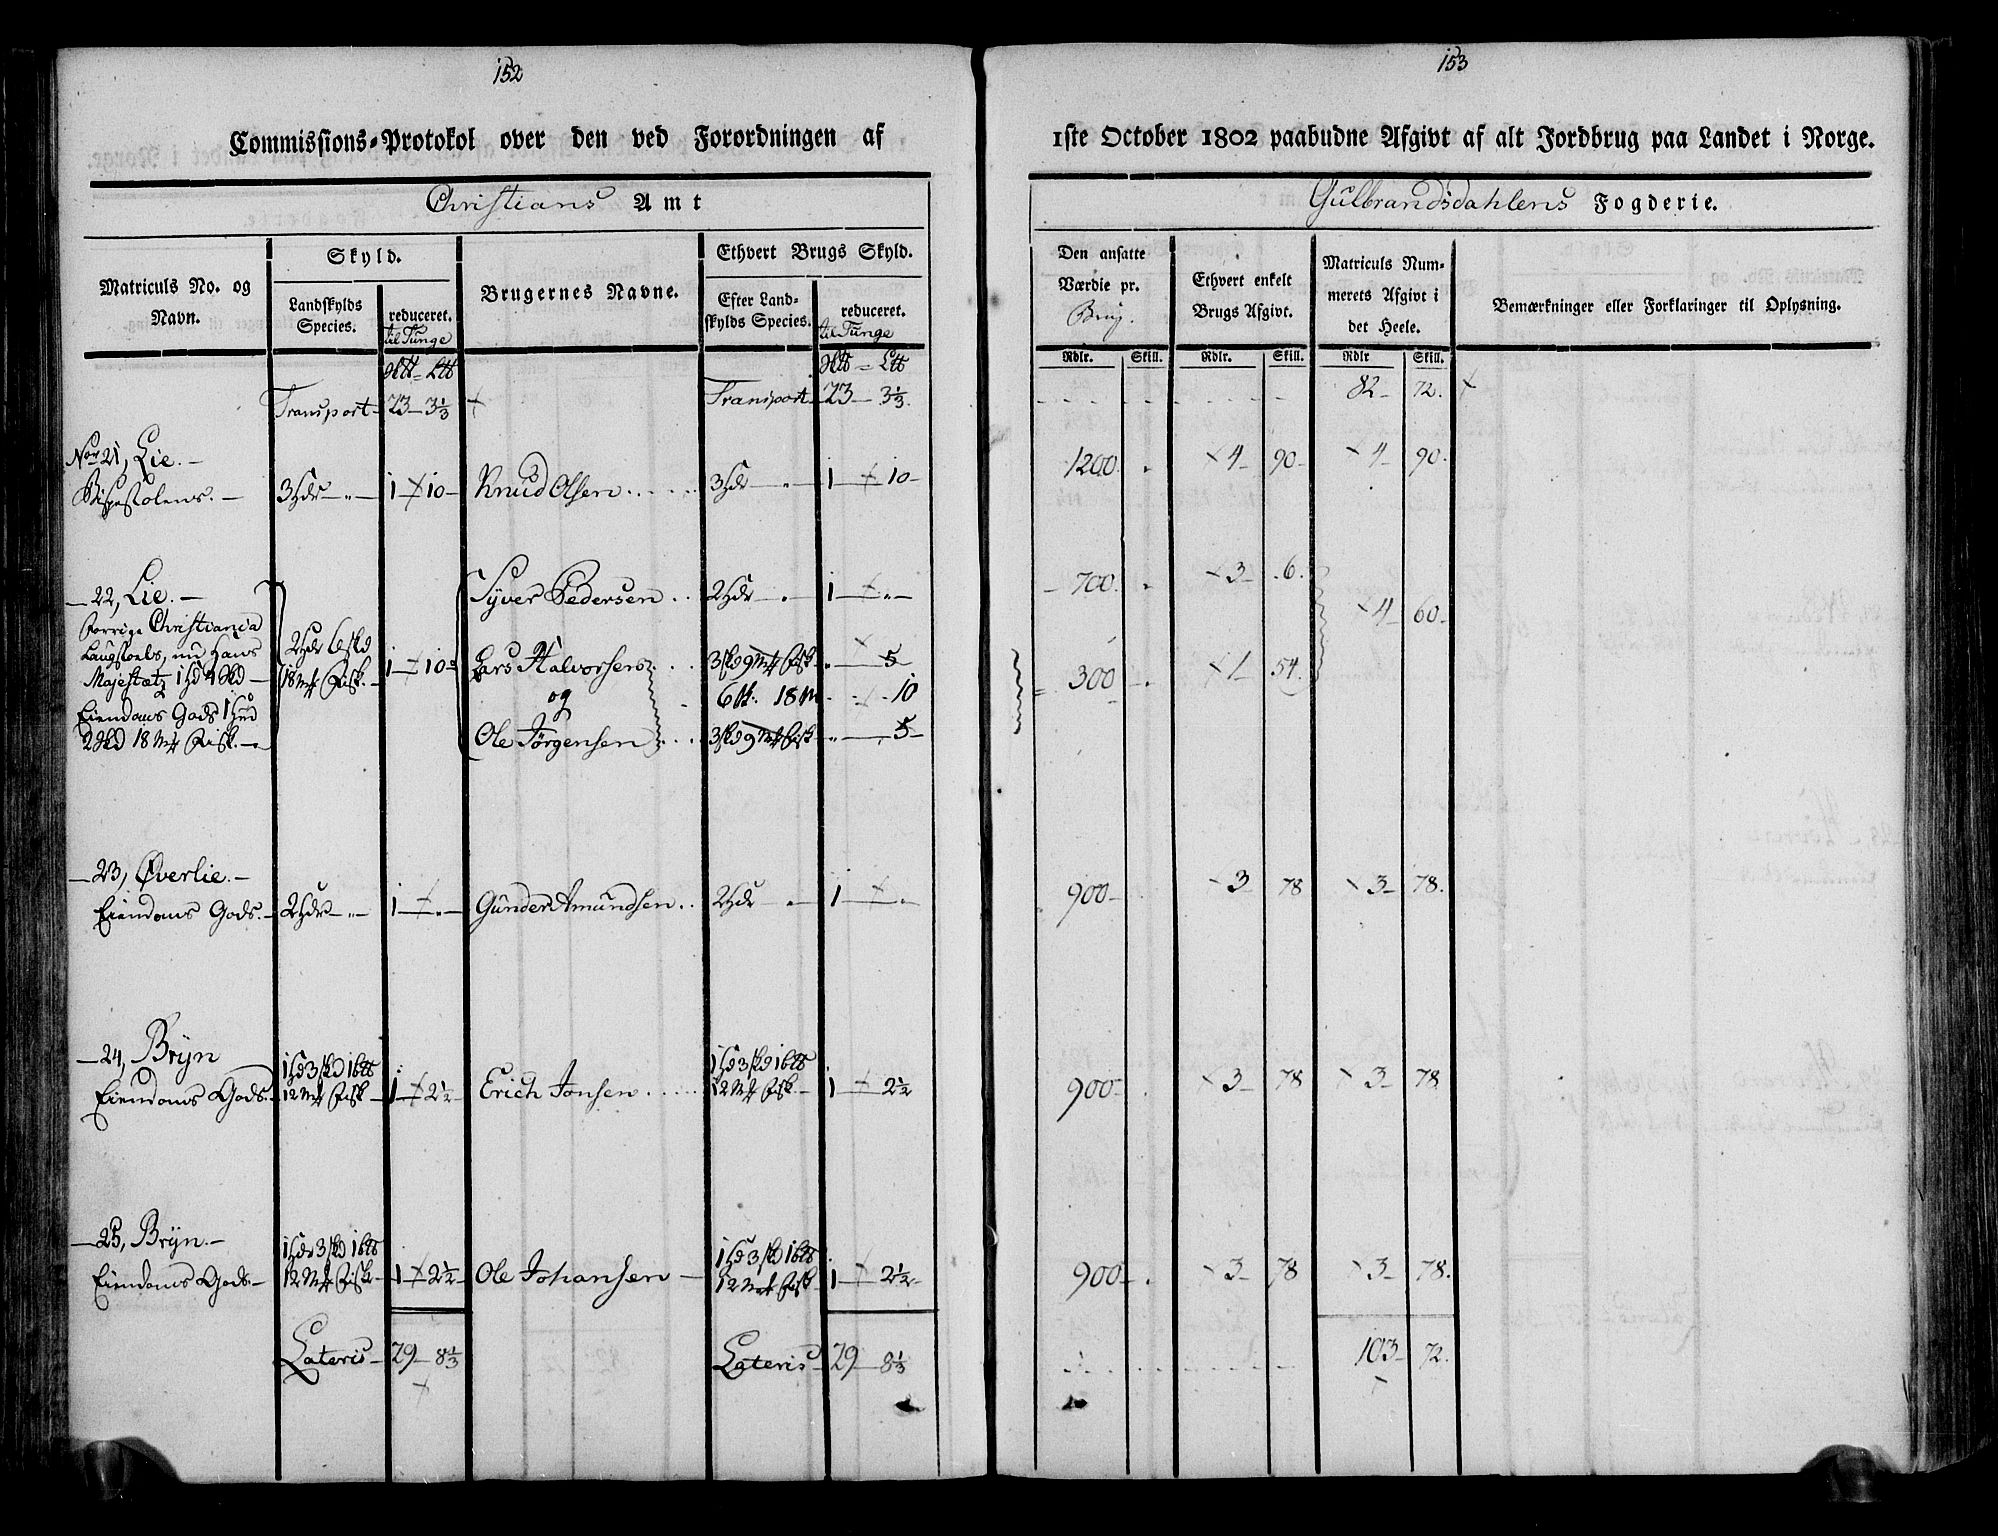 152
Commissions-Protokol over den ved Forordningen af
Christians Amt
Matriculs No. og Navn.
Skyld.
Landskylds Species.
reduceret. til Tunge
Brugernes Navne.
Ethvert Brugs Skyld.
Efter Landskylds Species.
reduceret. til Tunge
Transport 23 3 1/3 Transport 23 3 1/3
Nor 21, Lie.
Bispestolens. 3 Hdr 1 10 Knud Olsen 3 Hdr 1 10
22, Lie. Syver Pedersen 2 Hdr 1
forrige Christiania
Laugstoels, nu Hans 2 Hdr 6 skd 1 10 Lars Halvorsen 3 skd 9 Mk Fisk 5
Majestætz 18 Mk Fisk og 18 M 10
Eiendoms Gods 1 Hud
2 Skd 18 Mk Fisk. Ole Jörgensen 3 skd 9 Mk Fisk 5
23, Øverlie.
Eiendoms Gods. 2 Hdr 1 Gunder Amundsen 2 Hdr 1
24, Bryn 1 Hd 3 skd 1 1 Hd 3 skd 1
Eiendoms Gods. 12 Mk Fisk 1 2 1/2 Erich Jonsen 12 Mk Fisk 1 2 1/2
25, Bryn. 1 Hd 3 skd 1 1 Hd 3 skd 1
Eiendoms Gods 12 Mk Fisk 1 2 1/2 Ole Johansen 12 Mk Fisk 1 2 1/2
Lateris 29 8 1/3 Lateris 29 8 1/3
153
1ste October 1802 paabudne Afgivt af alt Jordbrug paa Landet i Norge.
Gulbrandsdahlens Fogderie.
Den ansatte Værdie pr. Brug.
Ethvert enkelt Brugs Afgivt.
Matriculs Nummerets Afgivt i det Heele.
Bemærkninger eller Forklaringer til Oplysning.
Rdlr. Skill. Rdlr. Skill. Rdlr Skill.
82 72
1200 4 90 4 90
700 3 6
4 60
300 1 54
900 3 78 3 78
900 3 78 3 78
900 3 78 3 78
103 72